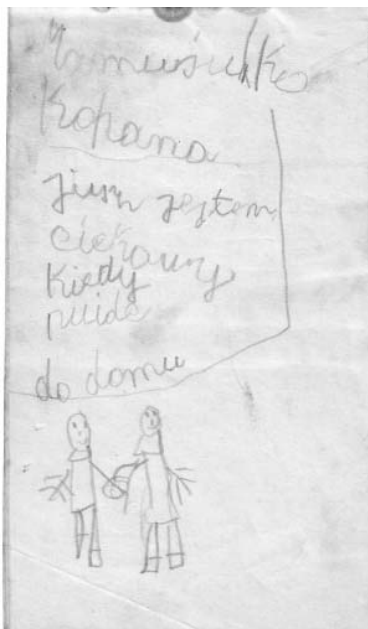 Mamusiulko
Kohana
jiusz jestem
ciekawy
kiedy
puide
do domu